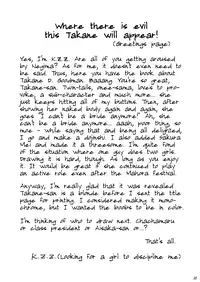 Where there is evil
this Takane will appear!
(Greetings page)
Yes, I'm K.Z.Z. Are all of you getting aroused
by Negima? As for me, it doesn't even need to
be said. Thus, here you have the book about
Takane D. Goodman. Baaang You're so great,
Takane-san. Twin-tails, mee-sama, loves to pro-
voke, a sub-character and much more... she
just keeps hitting all of my buttons. Then, after
showing her naked body again and again, she
goes "I can't be a bride anymore!" Ah, she
can't be a bride anymore... aaah, poor thing, so
more - while saying that and being all delighted,
I go and make a dojinshi. I also added Sakura
Mei and made it a threesome. I'm quite fond
of the situation where one guy does two girls.
Drawing it is hard, though. As long as you enjoy
it. It would be great if she continued to play
an active role even after the Mahora Festival.
Anyway, I'm really glad that it was revealed
Takane-san is a blonde before I sent the title
page for printing. I considered making it mono-
chrome, but I wanted the boobs to be in color.
I'm thinking of who to draw next. Chachamaru
or class president or Asakura-san or...?
That's all.
K.Z.Z. (Looking for a girl to discipline me)